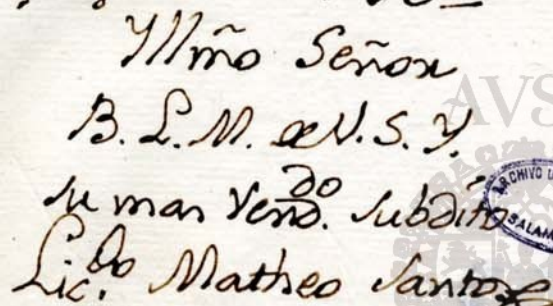 Yllmõ Señor
B. L. M. de V. S. Y.
su mas Rend.do Subdito
Lic.do Matheo Santos
AVS
ARCHIVO U
SALAM